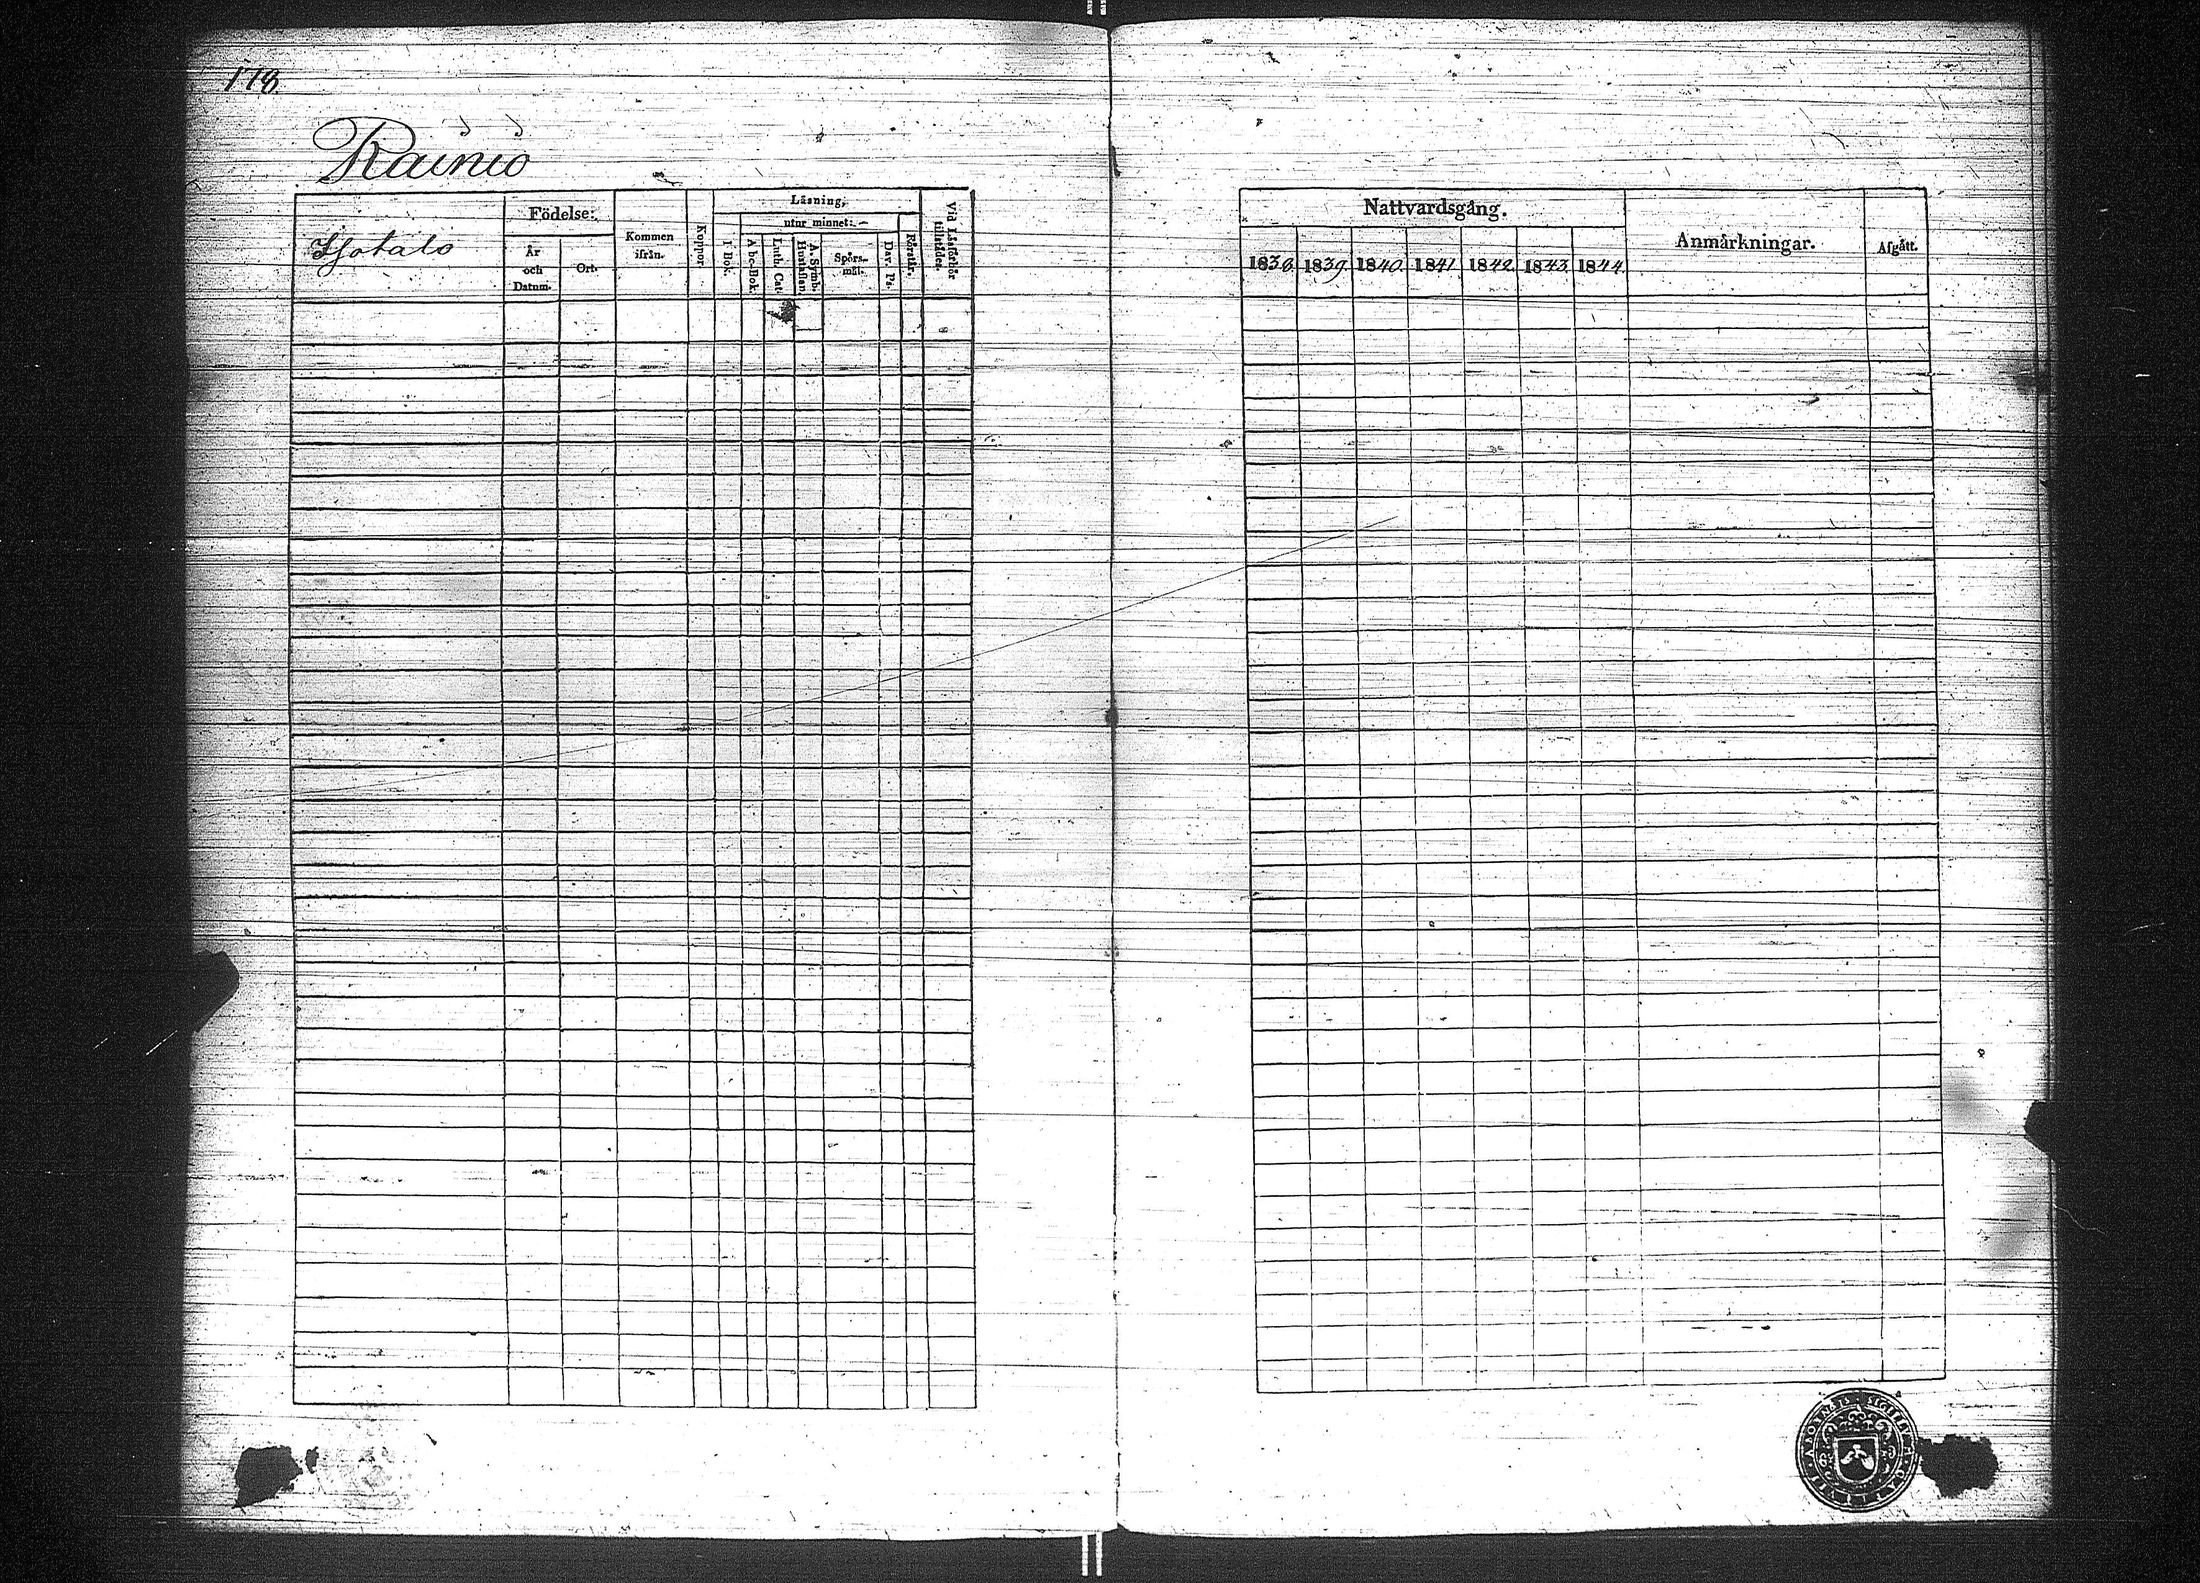 178.
Rainio
Isotalo
Födelse:
År
och
Datum.
Ort.
Kommen
ifrån.
Koppor
Läsning,
utur minnet:
I Bok.
Abc-Bok.
Luth. Cat.
A. Symb.
Hustaflan
Spörs-
mål.
Dav. Ps.
Förstår.
Vid Läsförhör
tillstädes.
Nattvardsgång.
1838. 1839. 1840. 1841. 1842. 1843. 1844.
Anmärkningar.
Afgått.